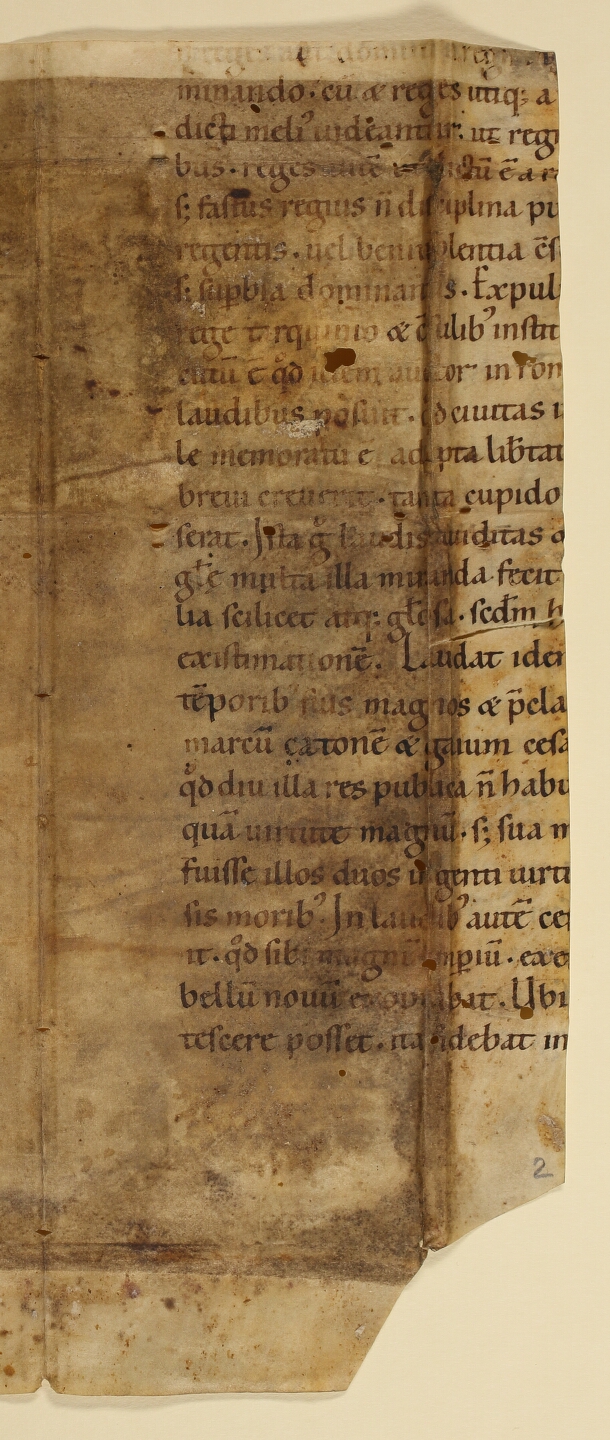 minando. cū & reges utiq; a
dicti meli᷒ uideantur. ut regi
bus. reges autē ē a r
s; fastus regius n̄ disciplina pu
regentis. uel beniuolentia ēs
s; supbia dominantis. Expul
rege tarquinio & c̄sulib᷒ instit
cutū ē qd̄ idem auctor in rom
laudibus posuit. qd ciuitas in
le memoratu ē adepta lib̄tat
breui creuerit. tanta cupido
serat. Ista g̊ laudis auiditas
gl̄e multa illa miranda fecit
lia scilicet atq; gl̄osa. scd̄m h
existimationē. Laudat idem
tēporib suis magnos & p̄cla
marcū catonē & gaium cesa
qd̄ diu illa res publica n̄ habu
quā uirtute magnū. s; sua m
fuisse illos duos ingenti uirtu
sis morib᷒. In laudib᷒ autē ce
it. qd̄ sibi magnū impiū. exer
bellū nouū exoptabat. Ubi
tescere posset. ita fidebat in
2